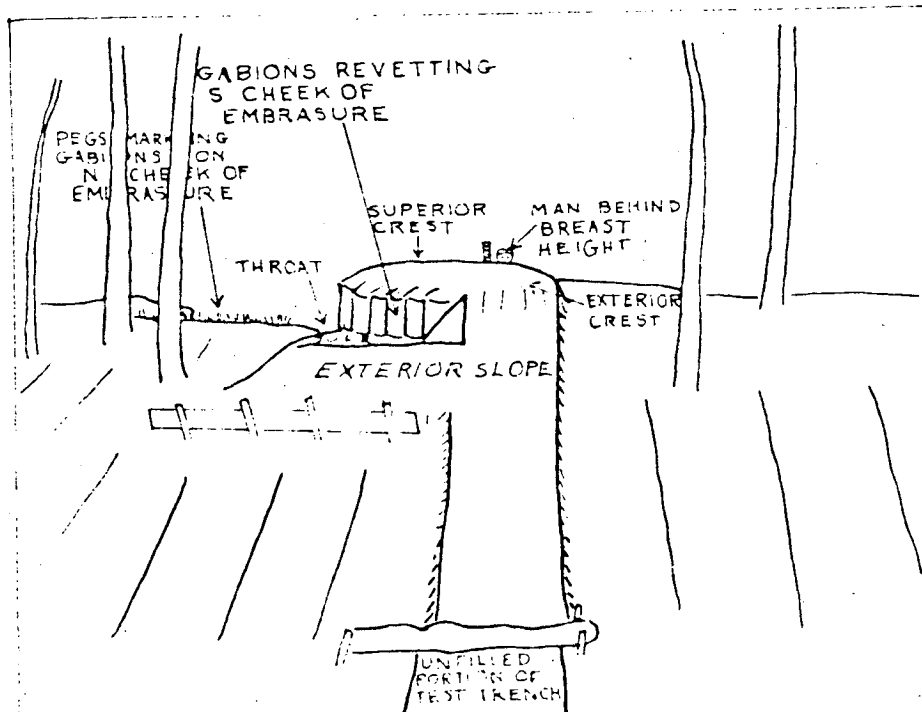 GABIONS REVETTING
S CHEEK OF
EMBRASURE
PEGS MARKING
GABIONS ON
N CHEEK OF
EMBRASURE
SUPERIOR
CREST
MAN BEHIND
BREAST
HEIGHT
THROAT
EXTERIOR
CREST
EXTERIOR SLOPE
UNFILLED
PORTION OF
TEST TRENCH